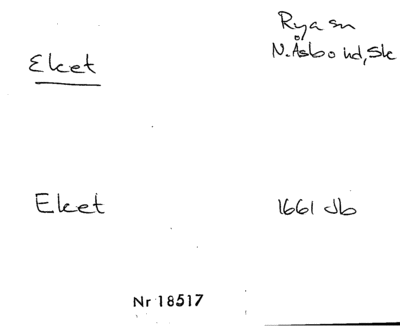 Eket
Rya sn
N. Åsbo hd, Sk
Eket
1661 Jb
Nr 18517